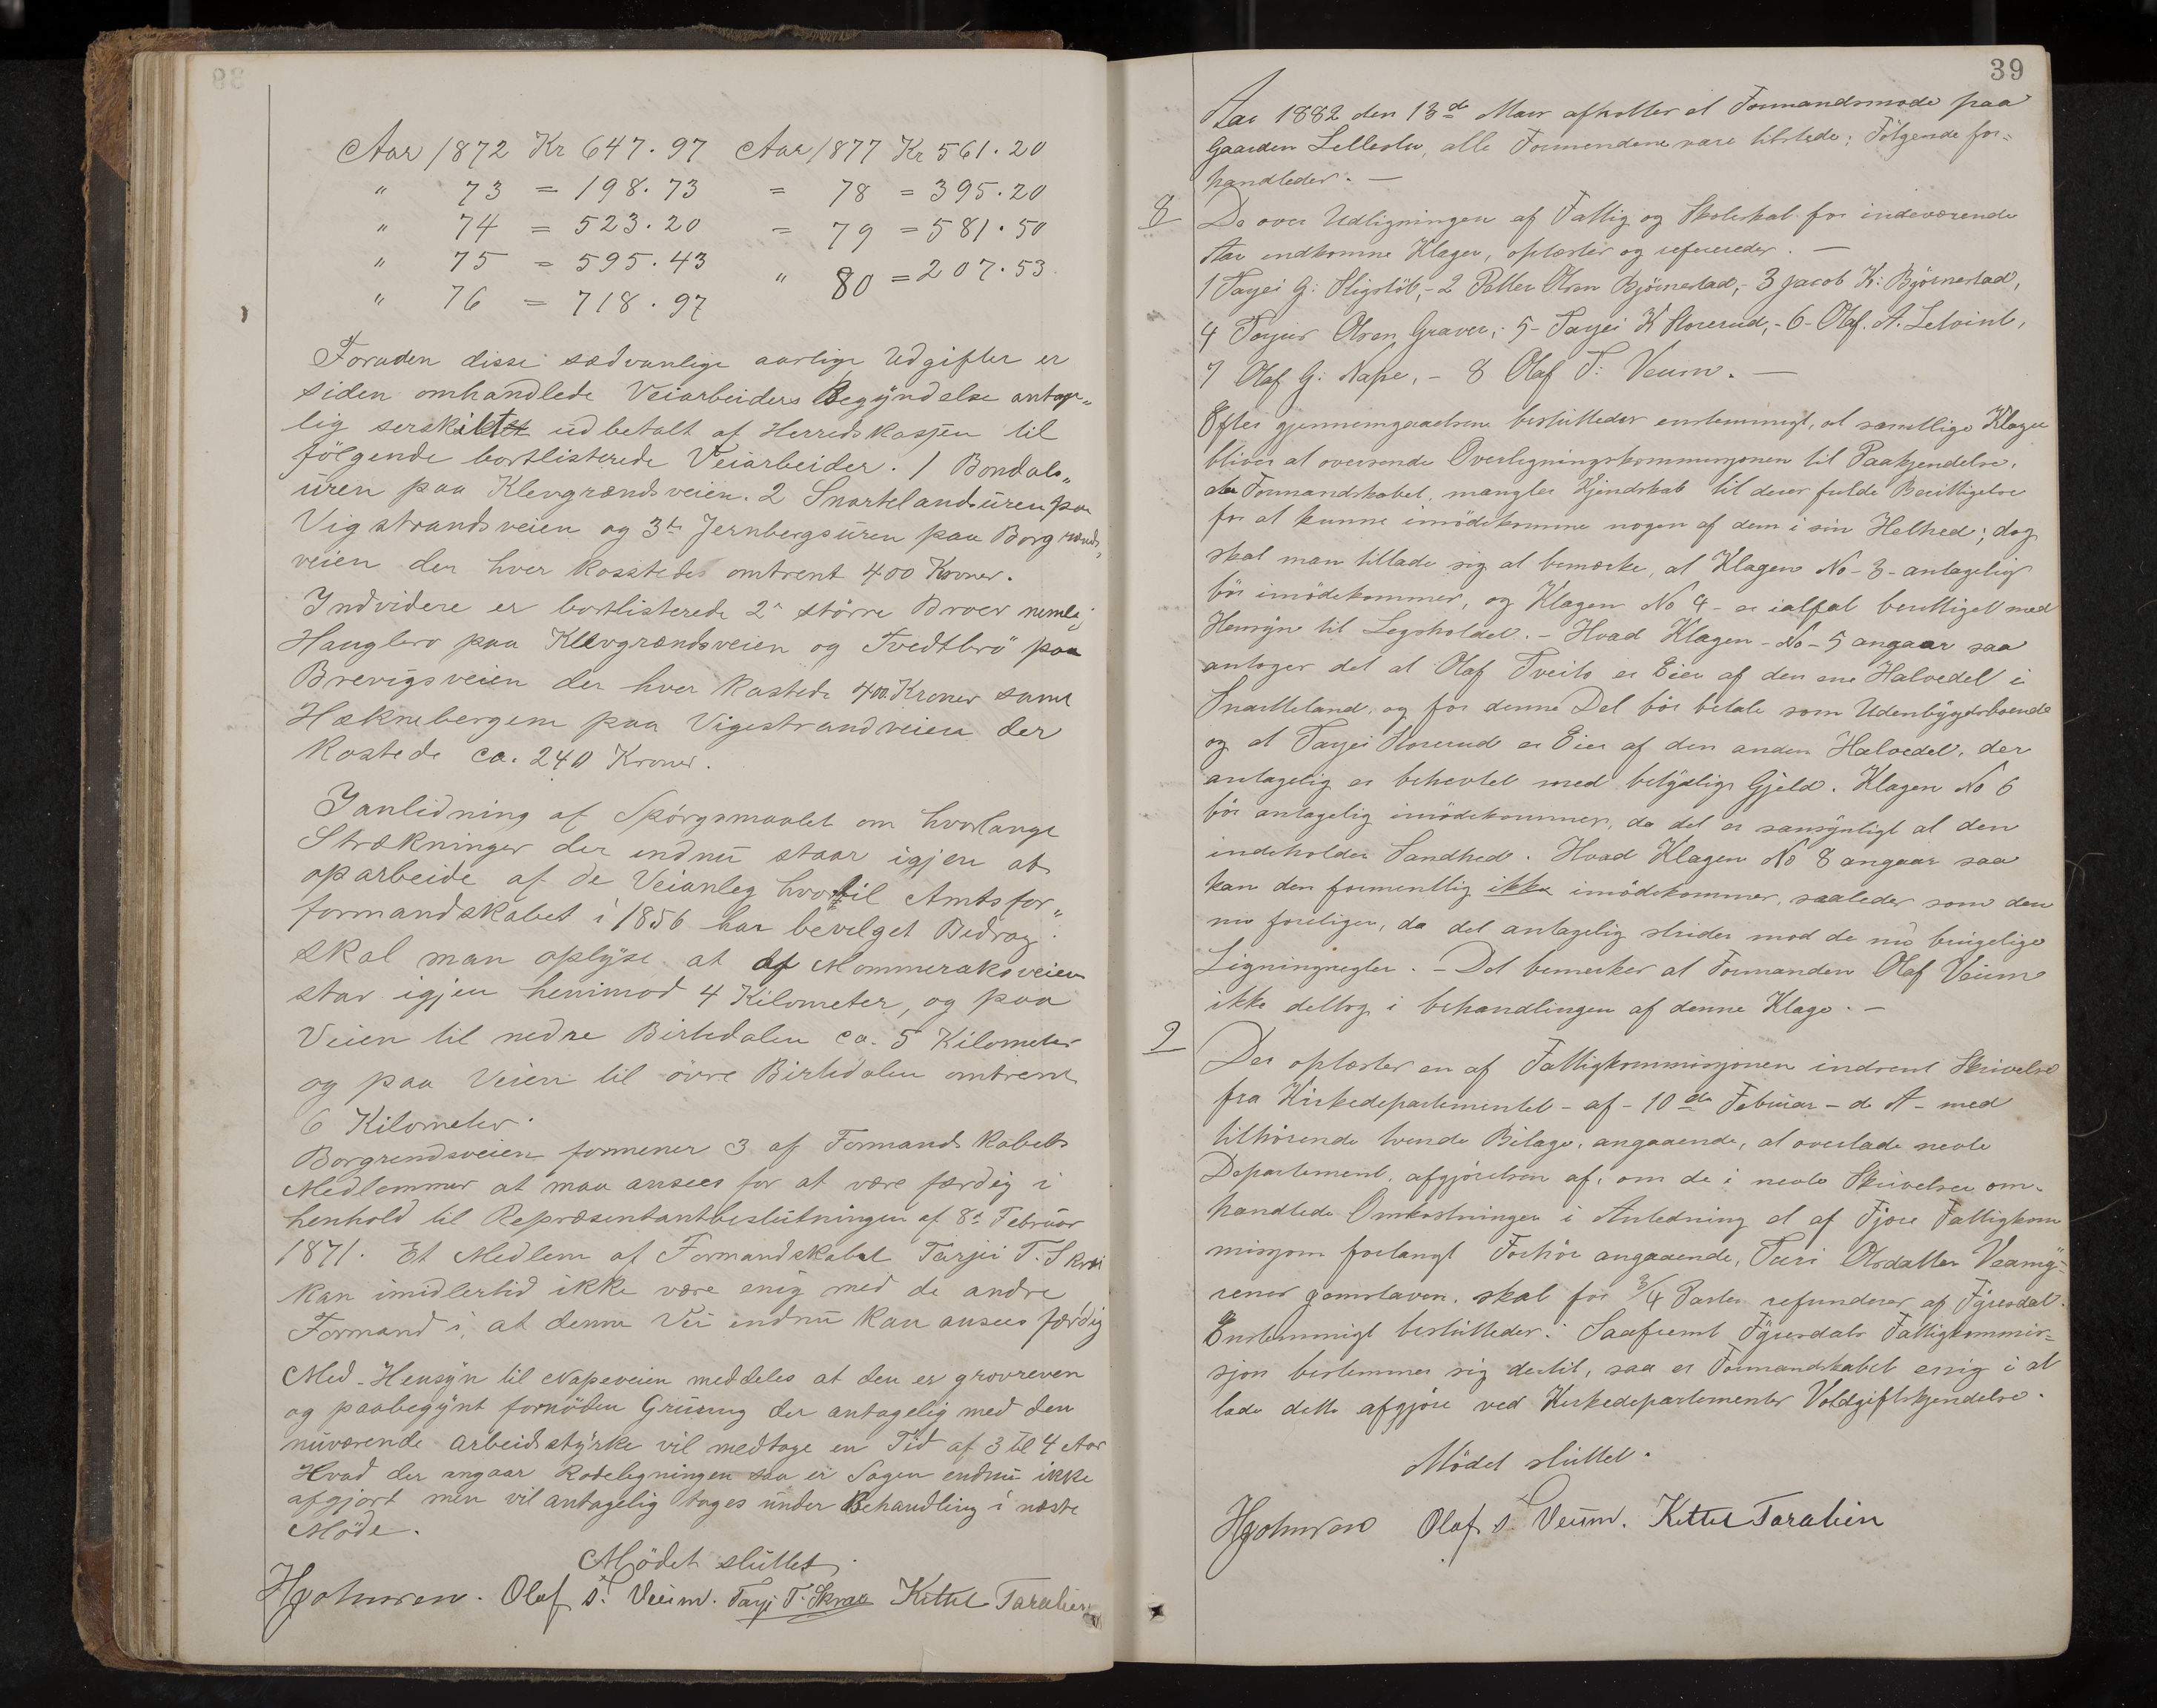 Aar 1872 Kr 647.97 Aar 1877 Kr 561.20
" 73 = 198.73 = 78 = 395.20
" 74 = 523.20 = 79 = 581.50
" 75 = 595.43 " 80 = 207.53
" 76 = 718.97
Foruden disse sædvanlige aarlige Udgifter er
siden omhandlede Veiarbeiders Begyndelse antag„
lig serskilt udbetalt af Herredskassen til
følgende bortlisterede Veiarbeider. 1 Bondals„
uren paa Klevgrændsveien. 2 Snartelandsuren paa
Vigstrandsveien og 3de Jernbergsuren paa Borgrænds„
veien der hver kosstede omtrent 400 Kroner.
Indvidere er bortlisterede 2de större Broer nemlig
Haugbro paa Klevgrændsveien og Tvedtbrö paa
Brevigsveien der hver kostede 400 Kroner samt
Hæknebergene paa Vigestrandveien der
kostede ca. 240 Kroner.
Ianlidning af Spörgsmaalet om hvorlange
Strækninger der endnu staar igjen at
oparbeide af de Veianleg hvortil Amtsfor„
formandskabet i 1856 har bevilget Bedrag
skal man oplyse at af Mommeraksveien
star igjen henimod 4 Kilometer, og paa
Veien til nedre Birtedalen ca. 5 Kilometer
og paa Veien til övre Birtedalen omtrent
6 Kilometer.
Borgrendsveien formener 3 af Formandskabets
Medlemmer at maa ansees for at være færdig i
henhold til Repræsentantbeslutningen af 8de Februar
1871. Et Medlem af Formandskabet Tarjei T. Skrei
kan imidlertid ikke være enig med de andre
Formænd i, at denne Vei endnu kan ansees færdig
Med Hensyn til Napeveien meddeles at den er grovreven
og paabegynt fornöden Grusing der antagelig med den
nuværende arbeidsstyrke vil medtage en Tid af 3 til 4 Aar
Hvad der angaar Rodelegningen saa er Sagen endnu ikke
afgjort men vil antagelig tages under Behandling i næste
Möde.
Mödet sluttet.
HJohnsen. Olaf S. Veum. Tarji T. Skrei Kittel Taralien
39
Aar 1882 den 13de Mars afholtes et Formandsmøde paa
Gaarden Lillestu, alle Formændene vare tilstede; Følgende for=
handledes. —
8 Da over Udligningen af Fattig og Skoleskat for indeværende
Aar indkomne Klager, oplæstes og refereredes. —
1 Tarjei G: Sligstöl,- 2 Petter Olsen Bjørnestad,- 3 Jacob K: Bjørnestad,
4 Torjus Olsen Graver,- 5- Tarjei K Storerud,- 6- Olaf. A. Letvint,
7 Olaf G: Nape,- 8 Olaf T: Veum. —
Efter gjennemgaaelsen besluttedes enstemmigt, at samtlige Klager
bliver at oversende Overligningskommissjonen til Paakjendelse,
da Formandskabet mangler Kjendskab til deres fulde Berettigelse
for at kunne imødekomme nogen af dem i sin Helhed; dog
skal man tillade sig at bemærke, at Klagen No- 3- antagelig
bör imødekommes, og Klagen No 4- er ialfal berettiget med
Hensyn til Legsholdet. - Hvad Klagen - No- 5 angaar saa
antager det at Olaf Tveito er Eier af den ene Halvedel i
Snarteland, og for denne Del bör betale som Udenbygdsboende
og at Tarjei Storerud er Eier af den anden Halvedel, der
antagelig er beheftet med betydelige Gjeld. Klagen No 6
bör antagelig imödekommes, da det er sansynligt at den
indeholder Sandhed. Hvad Klagen No 8 angaar saa
kan den formentlig ikke imödekommes, saaledes som den
nu foreliger, da det antagelig strider mod de nu brugelige
Ligningsregler. - Det bemerkes at Formanden Olaf Veum
ikke deltog i behandlingen af denne Klage. -
9 Der oplæstes en af Fattigkommissjonen indsent Skrivelse
fra Kirkedepartementet - af - 10de Februar - d A - med
tilhörende tvende Bilage, angaaende, at overlade nevte
Departement, afgjörelsen af, om de i nevte Skrivelse om-
handlede Omkostninger i Anledning et af Fjære Fattigkom
missjon forlangt Forhör angaaende, Turi Olsdatter Veamy-
renes , skal for 3/4 Parter refunderes af Fyresdal.
Enstemmigt besluttedes: Saafremt Fyresdals Fattigkommis=
sjon bestemmer sig dertil, saa er Formandskabet enig i at
lade dette afgjöre ved Kirkedepartementes Voldgiftskjendelse.
Mödet sluttet.
HJohnsen Olaf S. Veum. Kittel Taralien